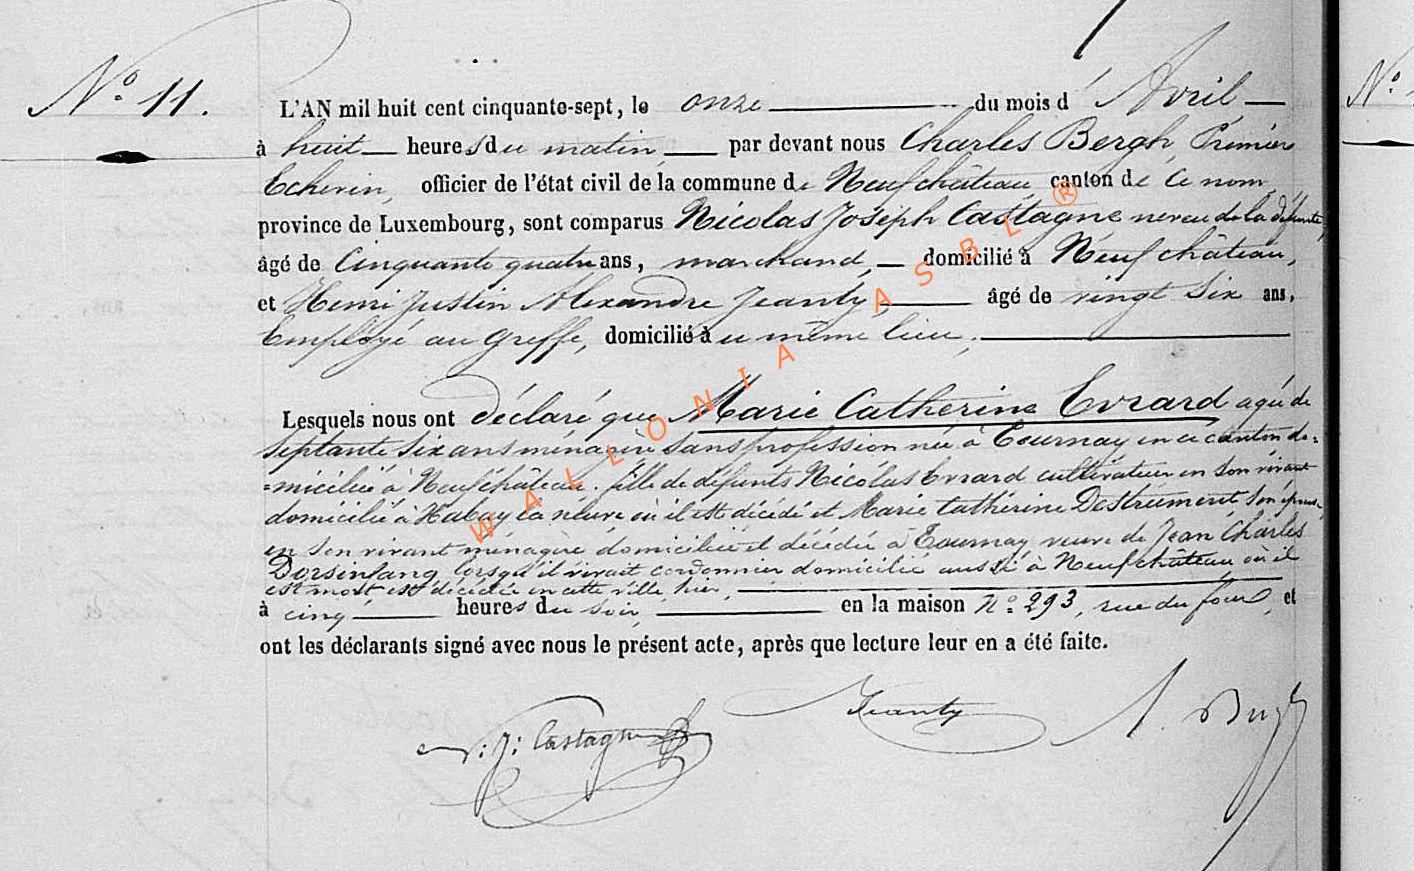 N° 11.
L'AN mil huit cent cinquante-sept, le onze du mois d'Avril
à huit heures du matin, par devant nous Charles Bergh, Premier
Echevin, officier de l'état civil de la commune de Neufchâteau, canton de ce nom,
province de Luxembourg, sont comparus Nicolas Joseph Castagne neveu de la défunte,
âgé de Cinquante quatre ans, marchand, domicilié à Neufchâteau,
et Henri Justin Alexandre Jeanty, âgé de vingt Six ans,
Employé au greffe, domicilié au même lieu,
Lesquels nous ont déclaré que Marie Catherine Evrard agée de
Septante Six ans ménagère Sans profession née à Tournay en ce canton do=
=miciliée à Neufchâteau. fille de défunts Nicolas Evrard cultivateur en Son vivant
domicilié à Habay la neuve où il est décédé et Marie Cathérine Destrument Son épouse,
en Son vivant ménagère domiciliée et décédée à Tournay veuve de Jean Charles
Dorsinfang lorsqu'il vivait cordonnier domicilié aussi à Neufchâteau où il
est mort est décédée en cette ville, hier,
à cinq heures du soir, en la maison N° 293, rue du four, et
ont les déclarants signé avec nous le présent acte, après que lecture leur en a été faite.
N. J. Castagne
Jeanty
WALLONIA ASBL ®
N°